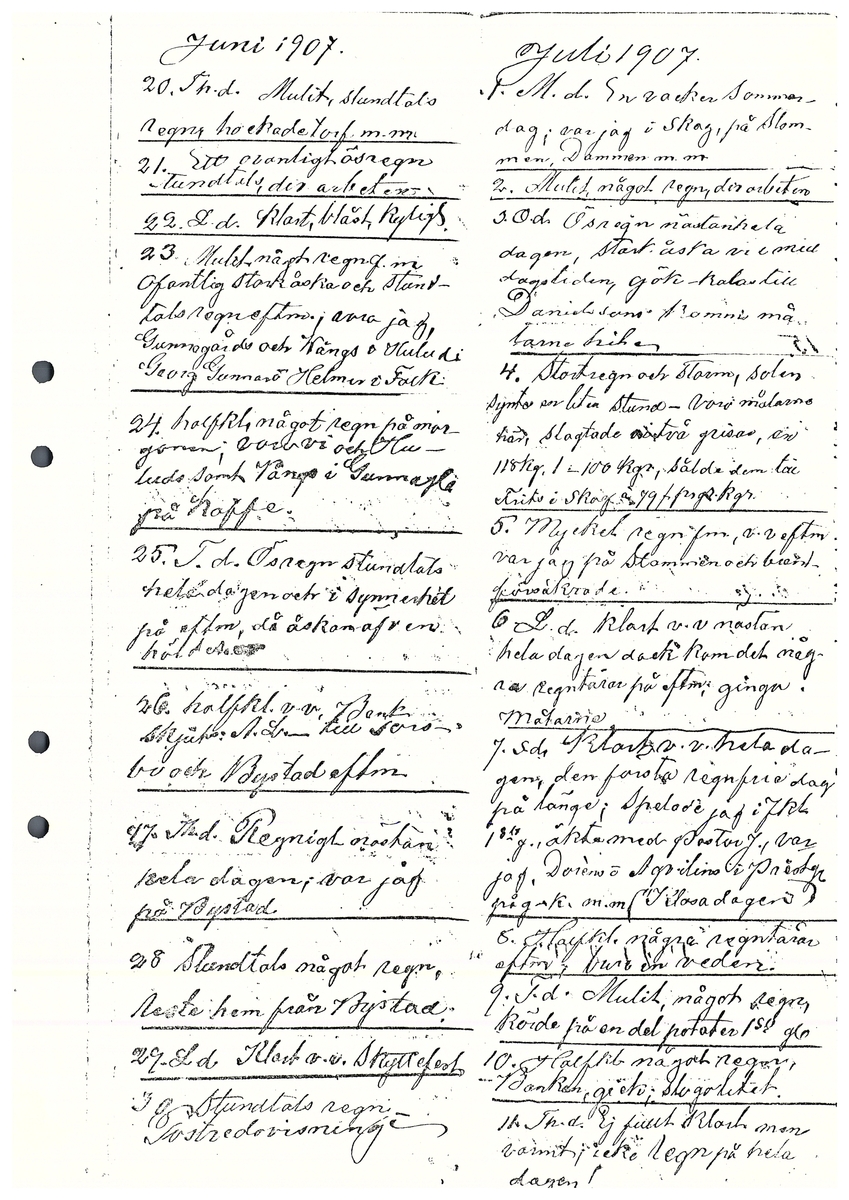 Juni 1907.
20. Th.d. Mulit, stundtals
regn, hockade torf m.m.
21. Ett ovanligt ösregn
stundtals, div arbeten
22. L.d. Klart, blåst, kyligt.
23. Mulit, något regn f.m
Ofantlig stark åska och stund-
tals regn eftm.; voro jag,
Gunnogårds och Vängs o Huluds i
Georg Gunnarö Helmer i Fack
24. halfkl, något regn på mor-
gonen; voro vi och Hu-
luds samt Vängs i
på Kaffe.
25. T.d. Ösregn stundtals
hela dagen och i synnerhet
på eftm, då åskan afven
26. halfkl. v.v. Bank
till
bo och Bystad eftm
27. Th.d. Regnigt nästan
hela dagen; var jag
på Bystad
28 Stundtals något regn,
reste hem från Bystad.
29. L.d Klart v.v. Skyttefest
30 Stundtals regn
Juli 1907.
1. M.d. En vacker Sommar-
dag; var jag i Skog, på Stom-
men, Dammen m.m
2. Mulit, något regn, div arbeten
3. O.d. Ösregn nästan hela
dagen, stark åska v.v midd
dagstiden, gök-kalas till
Danielssons. Kommo må
larne hit
4. Stortregn och storm, solen
synts en liten stund - voro målarne
här, slagtade två grisar, en
118 kg. 1 = 100 kgr, sålde dem till
Frits i Skog a 79 f. pr kgr.
5. Mycket regn fm, v.v eftm
var jag på Stommen och brand-
försäkrade.
6 L.d. Klart v.v nästan
hela dagen dock kom det någ-
ra regntårar på eftm; gingo
Målarne
7. Sd. Klart v.v. hela da-
gen, den första regnfria dag
på länge; Spelade jag i 7kl
åkte med Pastor J., var
jag, Doréns o Agvilins i Prästg
på g-k. m.m ("Klosadagen")
8. Halfkl några regntårar
eftm; buro in veden.
9. T.d. Mulit, något regn,
körde på en del potater
10. Halfkl något regn,
Banken, gick; slogo litet.
11. Th.d. Ej fullt Klart men
varmt; icke regn på hela
dagen!